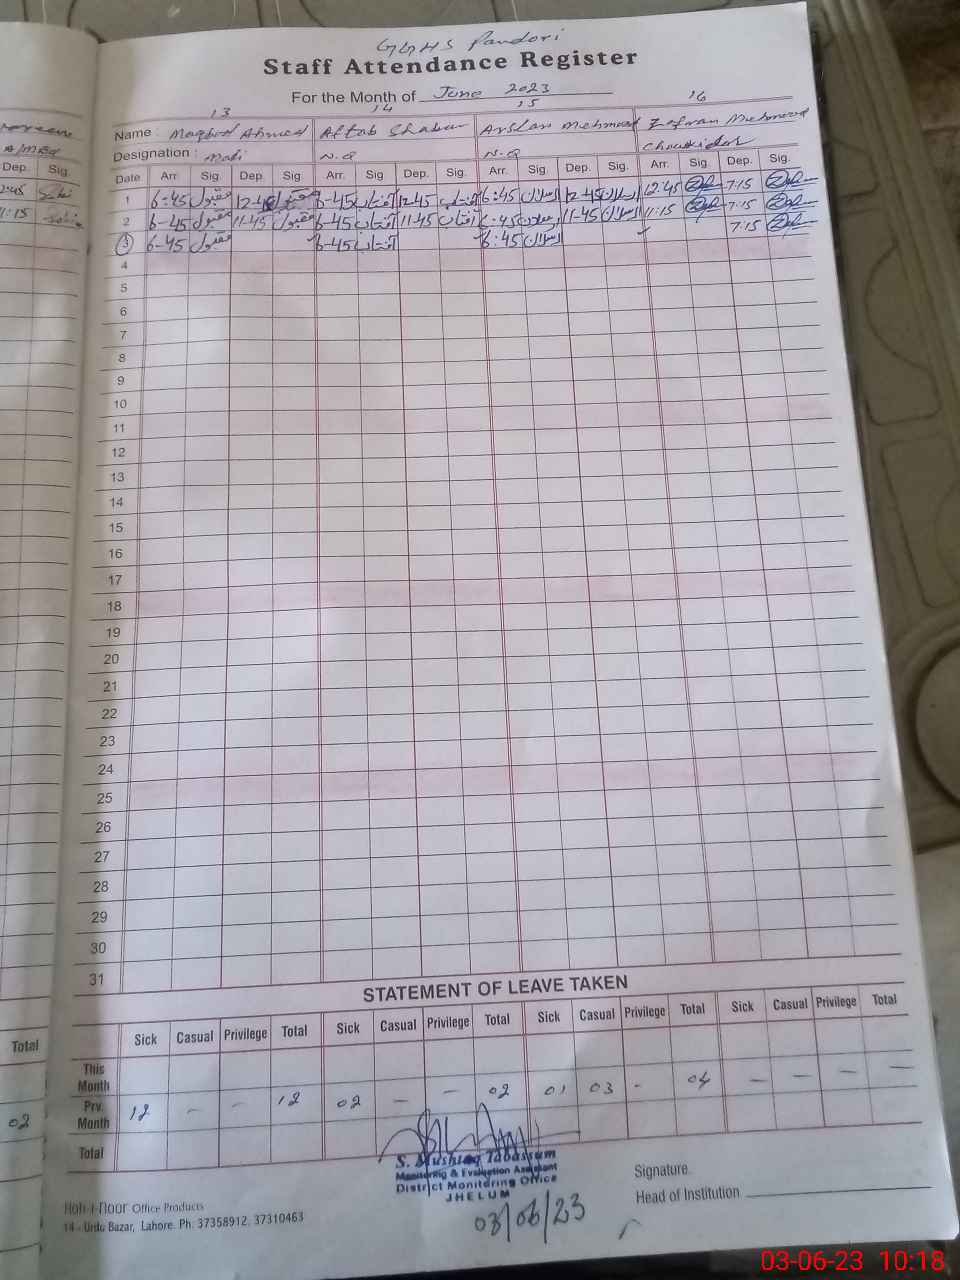 GGHS Pandori
Staff Attendance Register
For the Month of June 2023
13 14 15 16
Name : Maqbool Ahmed Aftab Shabur Arslan Mehmood Zafran Mehmood
Designation : Mali N.Q N.Q Chowkidar
Date Arr. Sig. Dep. Sig Arr. Sig Dep. Sig. Arr. Sig. Dep. Sig. Arr. Sig. Dep. Sig.
1 6:45 مقبول 12-45 مقبول 6-45 آفتاب 12-45 آفتاب 6:45 ارسلان 12-45 ارسلان 12:45 7:15
2 6-45 مقبول 11-45 مقبول 6-45 آفتاب 11-45 آفتاب 6:45 ارسلان 11-45 ارسلان 11:15 7:15
3 6-45 مقبول 6-45 آفتاب 6:45 ارسلان 7:15
4
5
6
7
8
9
10
11
12
13
14
15
16
17
18
19
20
21
22
23
24
25
26
27
28
29
30
31
STATEMENT OF LEAVE TAKEN
Sick Casual Privilege Total Sick Casual Privilege Total Sick Casual Privilege Total Sick Casual Privilege Total
This Month
Prv. Month 12 – – 12 02 – – 02 01 03 - 04 – – – –
Total
S. Mushtaq Tabassum
Monitoring & Evaluation Assistant
District Monitoring Office
JHELUM
03/06/23
Signature.
Head of Institution
Koh-i-Noor Office Products
14 - Urdu Bazar, Lahore. Ph: 37358912, 37310463
Dep. Sig.
11:15
Total
02
03-06-23 10:18